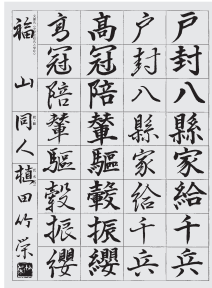 戸封八縣家給千兵
戸封八縣家給千兵
高冠陪輦驅轂振纓
高冠陪輦驅轂振纓
福山 同人 植田竹栄